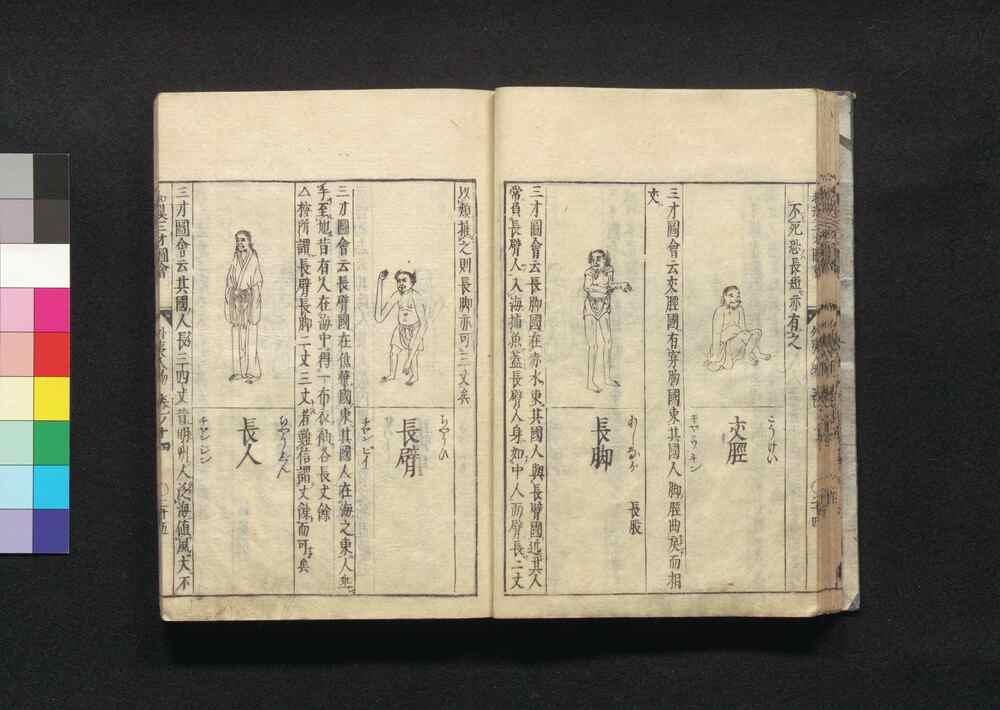 不死恐長趐亦有之
こうけい
交脛
キャウ キン
三才圖會云交脛國有穿胸國東其國人脚脛曲戾而相
交
あしなが
長脚
長股
三才圖會云長脚國在赤水東其國人與長臂國近其人
常負長臂人入海捕魚蓋長臂人身如中人而臂長二丈
以類推之則長脚亦可三丈矣
ちやうひ
長臂
チャン ピイ
三才圖會云長臂國在僬僥國東其國人在海之東人垂
手至地昔有人在海中得一布衣袖各長丈餘
△按所謂長臂長脚二丈三丈者難信謂丈餘而可矣
ちやうじん
長人
チャン ジン
三才圖會云其國人長三四丈昔明州人泛海值風大不